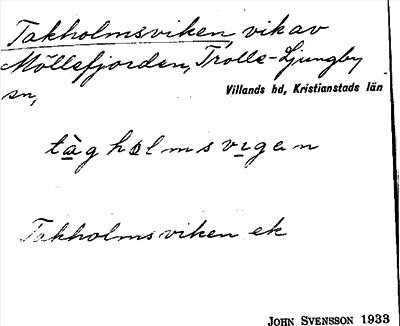 Takholmsviken, vik av
Möllefjorden, Trolle-Ljungby
sn,
Villands hd, Kristianstads län
tàghɷlmsvıgan
Takholmsviken ek
JOHN SVENSSON 1933